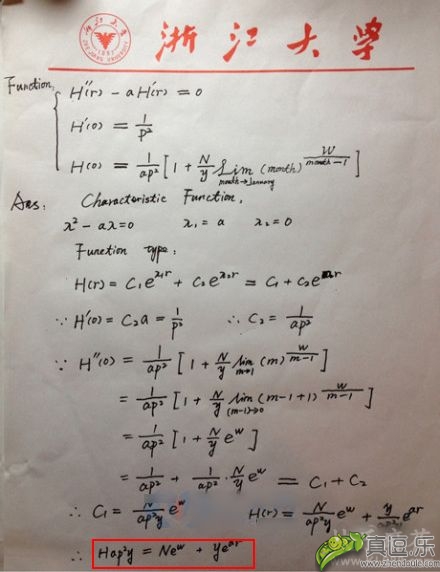 浙江大学
Function:
H''(r) - aH'(r) = 0
H'(0) = 1/p²
H(0) = 1/ap² [1 + N/y Lim month→January (month)^(W/month-1)]
Ans: Characteristic Function,
x² - ax = 0    x₁ = a    x₂ = 0
Function type:
H(r) = C₁e^(x₁r) + C₂e^(x₂r) = C₁ + C₂e^(ar)
∵ H'(0) = C₂a = 1/p²    ∴ C₂ = 1/ap²
∵ H''(0) = 1/ap² [1 + N/y lim m→1 (m)^(W/m-1)]
= 1/ap² [1 + N/y lim (m-1)→0 (m-1+1)^(W/m-1)]
= 1/ap² [1 + N/y e^w]
= 1/ap² + 1/ap² · N/y e^w = C₁ + C₂
∴ C₁ = N/ap²y e^w    H(r) = N/ap²y e^w + y/ap²y e^(ar)
∴ Hap²y = Ne^w + ye^(ar)
真逗.乐
www.zhendoule.com